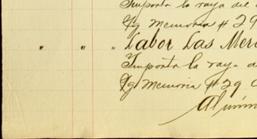 Importa la raya del
Yg Memoria # 29
" " " Labor Las Mer
Importa la raya d
Yg Memoria # 29